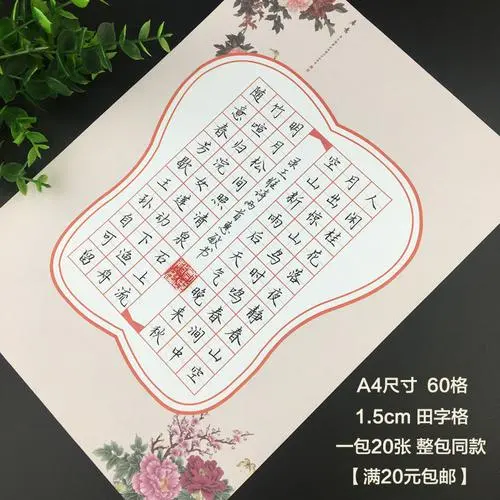 人闲桂花落夜静春山空
月出惊山鸟时鸣春涧中
空山新雨后天气晚来秋
录王维诗两首
明月松间照清泉石上流
竹喧归浣女莲动下渔舟
随意春芳歇王孙自可留
A4尺寸 60格
1.5cm 田字格
一包20张 整包同款
【满20元包邮】